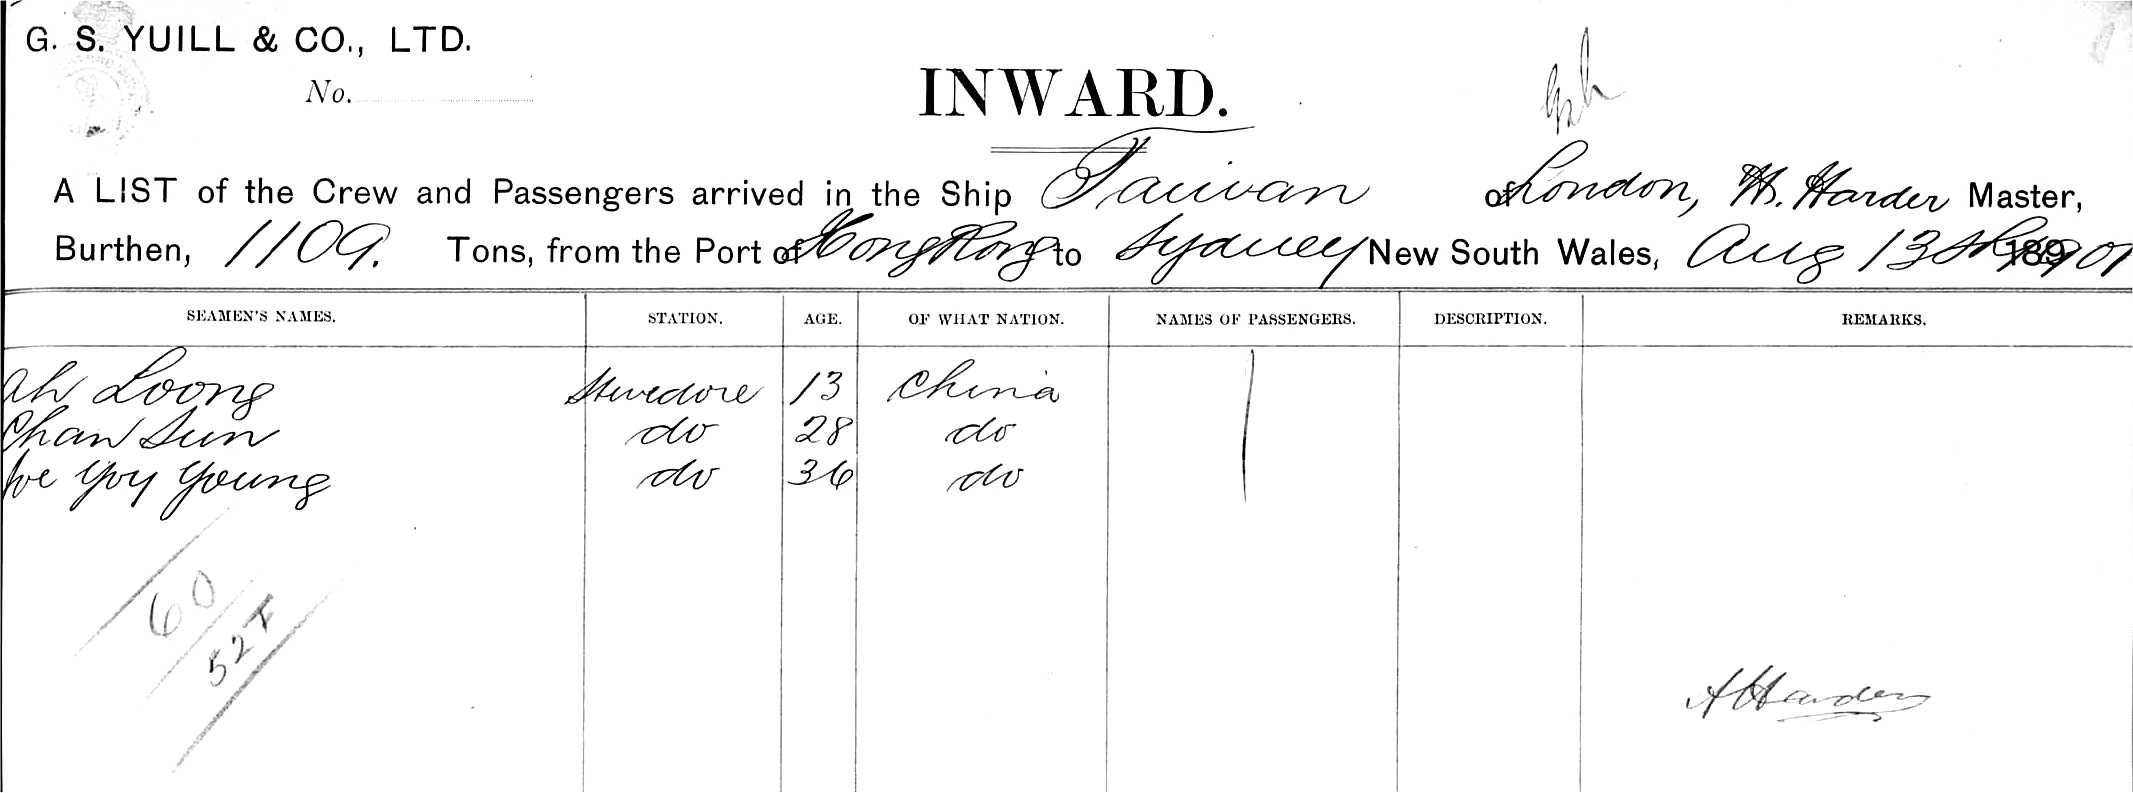 G. S. YUILL & CO., LTD.
No.
INWARD.
A LIST of the Crew and Passengers arrived in the Ship Taiwan of London, Harder Master,
Burthen, 1109. Tons, from the Port of Hong Kong to Sydney New South Wales, Aug 13th 1901
SEAMEN'S NAMES. STATION. AGE. OF WHAT NATION. NAMES OF PASSENGERS. DESCRIPTION. REMARKS.
Ah Loong Stevedore 13 China
Chan Sun do 28 do
Yoy Young do 36 do
60
52
Harder